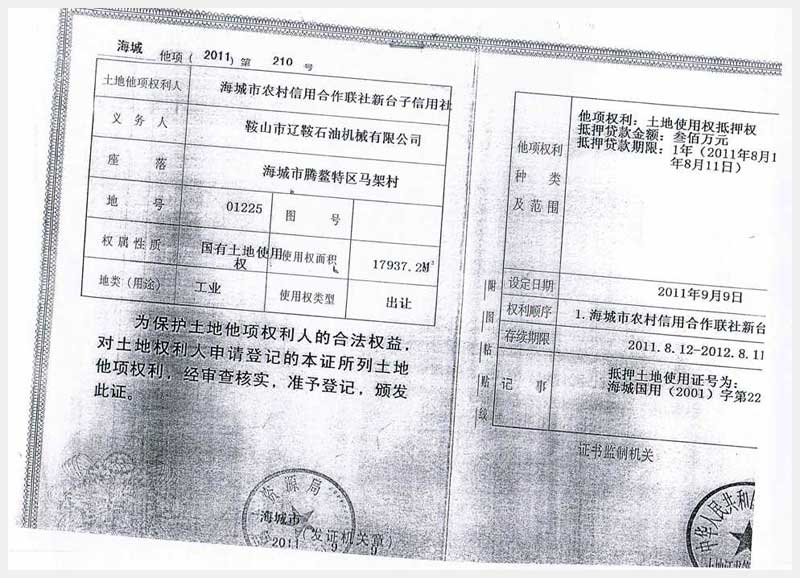 海城 他项(2011)第 210 号
土地他项权利人 海城市农村信用合作联社新台子信用社
义务人 鞍山市辽鞍石油机械有限公司
座落 海城市腾鳌特区马架村
地号 01225 图号
权属性质 国有土地使用权 使用权面积 17937.2M²
地类(用途) 工业 使用权类型 出让
为保护土地他项权利人的合法权益,
对土地权利人申请登记的本证所列土地
他项权利,经审查核实,准予登记,颁发
此证。
资源局
海城市
(发证机关章)
2011 9 9
他项权利种类及范围
他项权利:土地使用权抵押权
抵押贷款金额:叁佰万元
抵押贷款期限:1年(2011年8月1
年8月11日)
设定日期 2011年9月9日
权利顺序 1.海城市农村信用合作联社新台
存续期限 2011.8.12-2012.8.11
记事 抵押土地使用证号为:
海城国用(2001)字第22
附图粘贴线
证书监制机关
中华人民共和